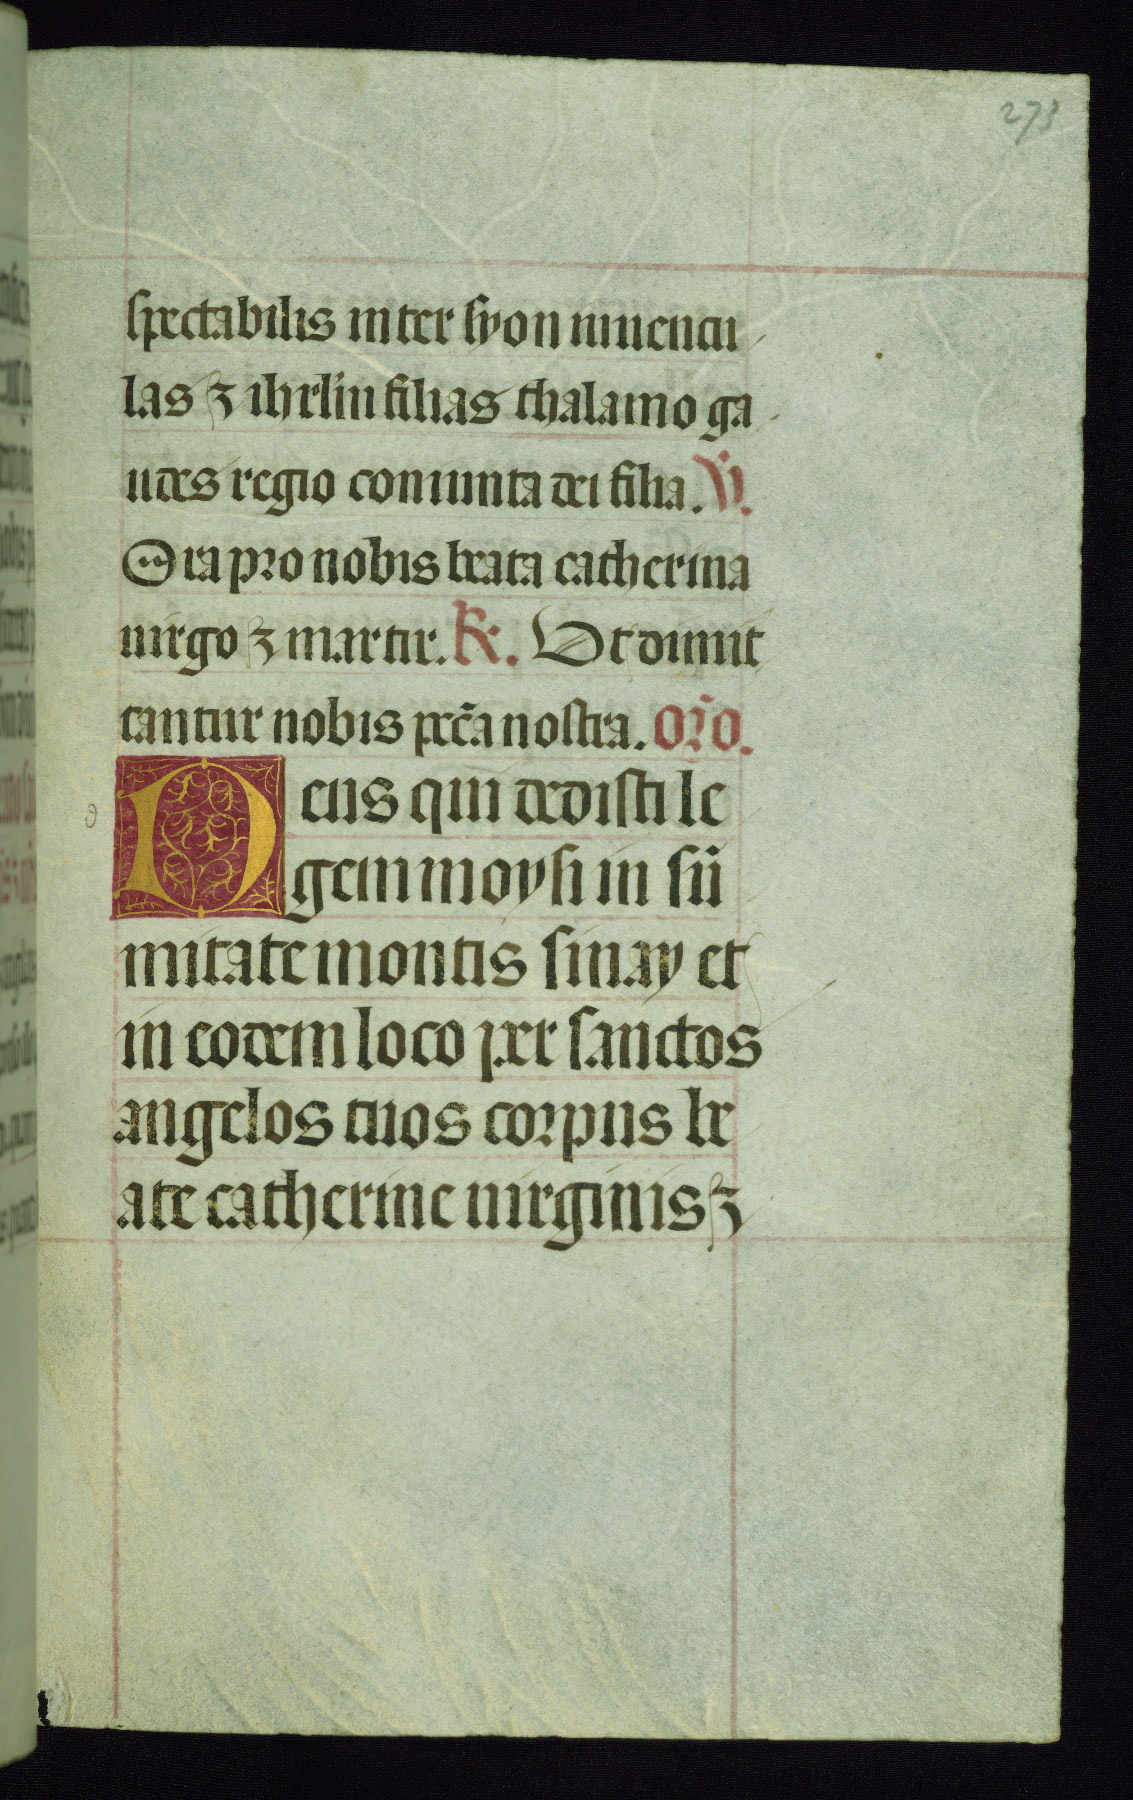 273
spectabilis inter syon iuuencu
las ⁊ ihrl̄m filias thalamo ga
udes regio coniunta dei filia. ℣.
Ora pro nobis beata catherina
uirgo ⁊ martir. ℟. Vt dimit
tantur nobis pcc̄a nostra. Or̄o.
Deus qui dedisti le
gem moysi in sū
mitate montis sinay et
in eodem loco per sanctos
angelos tuos corpus be
ate catherine uirginis ⁊